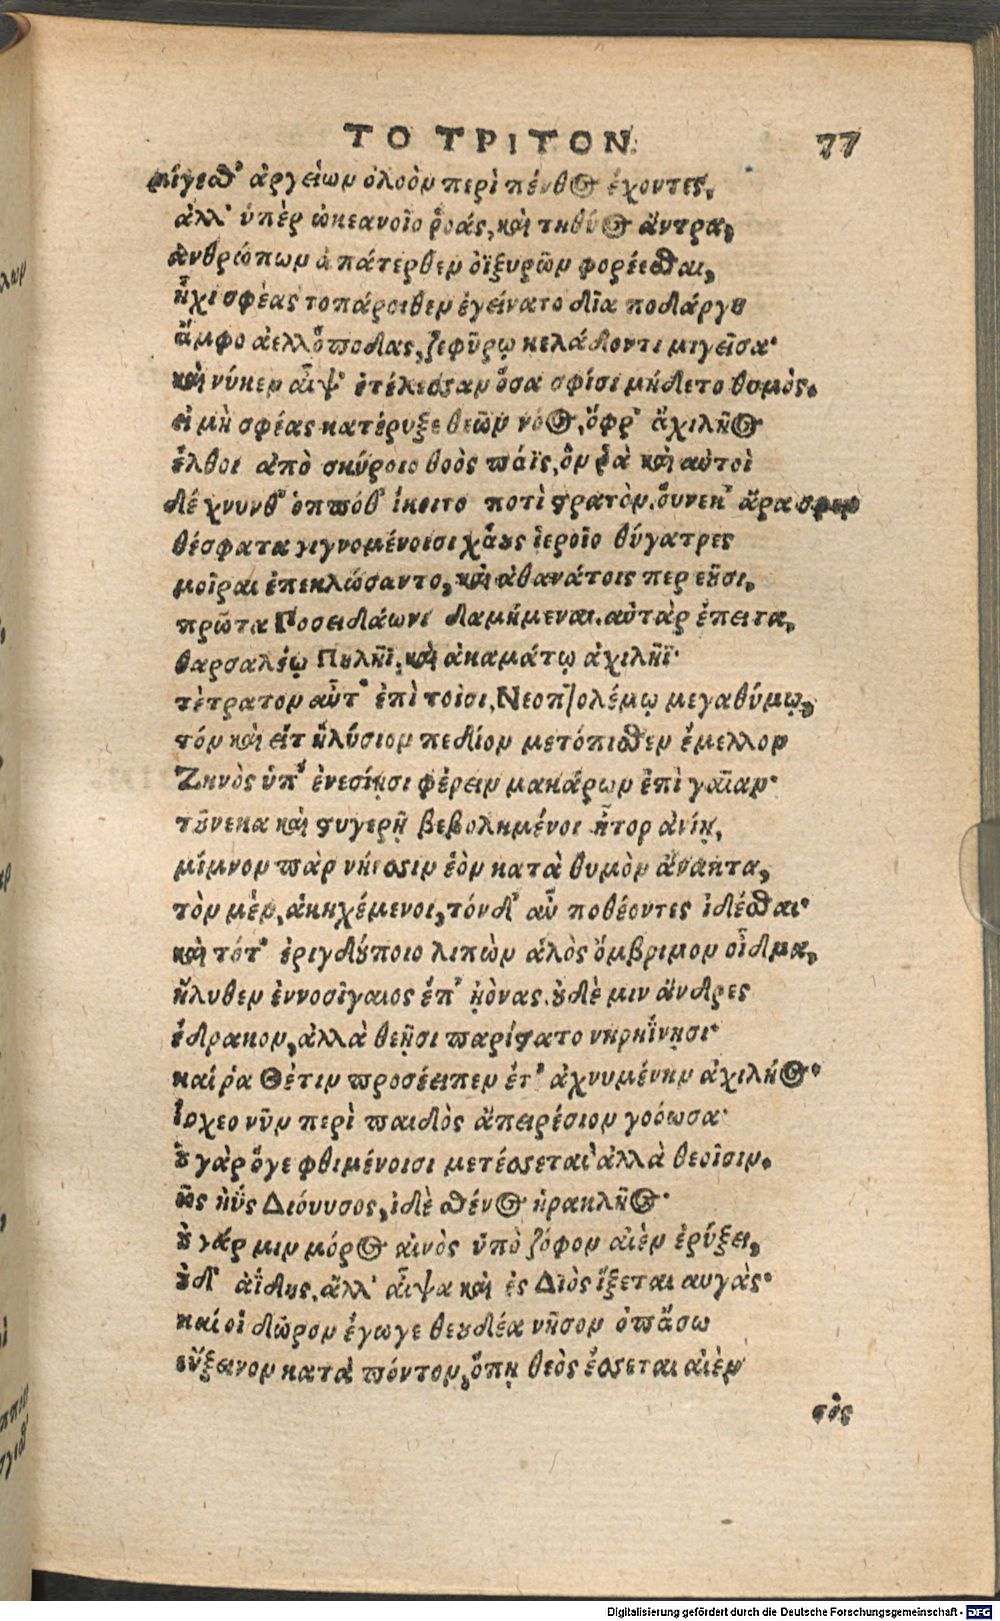 ΤΟ ΤΡΙΤΟΝ. 77
μίγεσθ' ἀργείων ὀλοὸν περὶ πένθος ἔχοντες,
ἀλλ' ὑπὲρ ὠκεανοῖο ῥοάς, καὶ τηθύος ἄντρα,
ἀνθρώπων ἀπάτερθεν ὀϊζυρῶν φορέεσθαι,
ἧχι σφέας τοπάροιθεν ἐγείνατο δῖα ποδάργη
ἄμφο ἀελλόποδας, ζεφύρῳ κελάδοντι μιγεῖσα·
καὶ νύκεν αἶψ' ἐτέλεσσαν ὅσα σφίσι μήδετο θυμὸς.
εἰ μὴ σφέας κατέρυξε θεῶν νόος, ὄφρ' ἄχιλῆος
ἔλθοι ἀπὸ σκύροιο θοὸς πάϊς, ὅν ῥὰ καὶ αὐτοὶ
δέχνυνθ' ὁππόθ' ἵκοιτο ποτὶ στρατὸν. οὕνεκ' ἄρα σφιν
θέσφατα γιγνομένοισι χάους ἱεροῖο θύγατρες
μοῖραι ἐπεκλώσαντο, καὶ ἀθανάτοις περ ἐῆσι,
πρῶτα Ποσειδάωνι δαμήμεναι. αὐτὰρ ἔπειτα,
θαρσαλέῳ Πηλῆϊ, καὶ ἀκαμάτῳ ἀχιλῆϊ·
τέτρατον αὖτ' ἐπὶ τοῖσι, Νεοπτολέμῳ μεγαθύμῳ,
τόν καὶ εἰς ἠλύσιον πεδίον μετόπισθεν ἔμελλον
Ζηνὸς ὑπ' ἐνεσίῃσι φέρειν μακάρων ἐπὶ γαῖαν·
τοὔνεκα καὶ στυγερῇ βεβολημένοι ἦτορ ἀνίῃ,
μίμνον πὰρ νήεσσιν ἐὸν κατὰ θυμὸν ἄνακτα,
τὸν μὲν, ἀκηχέμενοι, τόνδ' αὖ ποθέοντες ἰδέσθαι·
καὶ τότ' ἐριγδούποιο λιπὼν ἁλὸς ὄμβριμον οἶδμα,
ἤλυθεν ἐννοσίγαιος ἐπ' ᾐόνας. οὐδὲ μιν ἄνδρες
ἔδρακον, ἀλλὰ θεῇσι παρίστατο νηρηΐνῃσι·
καί ῥα Θέτιν προσέειπεν ἔτ' ἀχνυμένην ἀχιλῆος·
ἴσχεο νῦν περὶ παιδὸς ἀπειρέσιον γοόωσα·
οὐ γὰρ ὅγε φθιμένοισι μετέσσεται ἀλλὰ θεοῖσιν.
ὣς ἠῢς Διόνυσος, ἰδὲ σθένος ἡρακλῆος·
οὐ γάρ μιν μόρος αἰνὸς ὑπὸ ζόφον αἰὲν ἐρύξει,
οὐδ' ἀΐδης, ἀλλ' αἶψα καὶ ἐς Διὸς ἵξεται αυγάς·
καί οἱ δῶρον ἔγωγε θεουδέα νῆσον ὀπάσσω
εὔξεινον κατὰ πόντον, ὅπῃ θεὸς ἔσσεται αἰὲν
σὸς
Digitalisierung gefördert durch die Deutsche Forschungsgemeinschaft - DFG